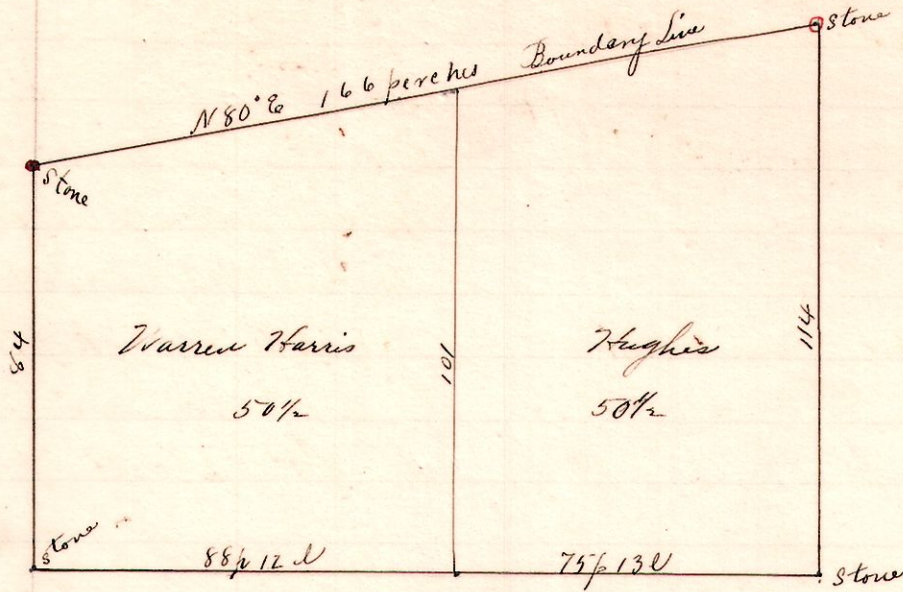 Stone
N 80° E 166 perches Boundary Line
Stone
84
Warren Harris
50 1/2
101
Hughes
50 1/2
114
Stone
88p 12 l
75p 13 l
Stone